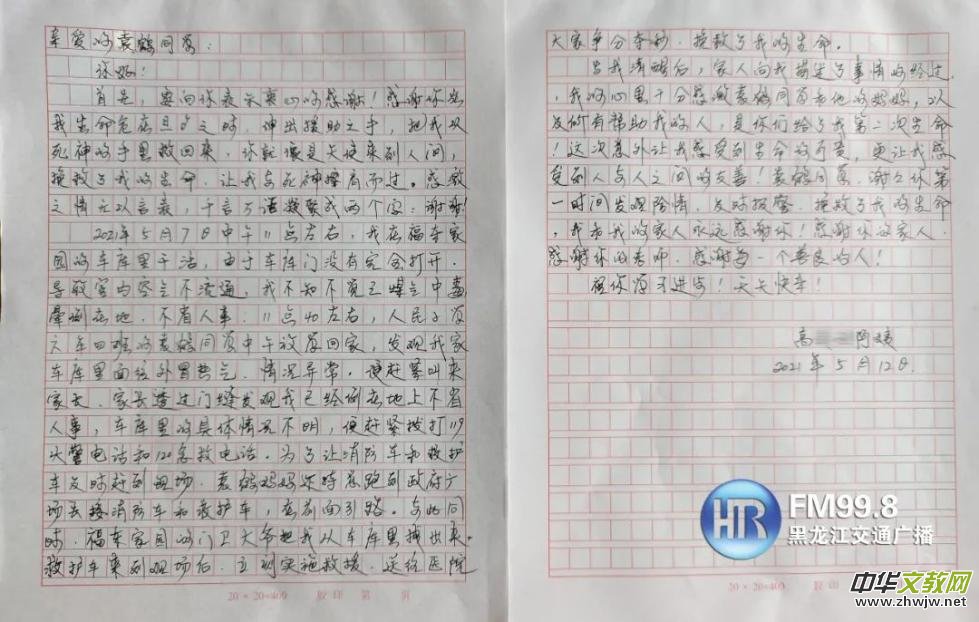 亲爱的袁鹤同学:
你好!
首先,要向你表示衷心的感谢!感谢你在
我生命危在旦夕之时,伸出援助之手,把我从
死神的手里救回来,你就像是天使来到人间,
挽救了我的生命,让我与死神擦肩而过。感激
之情无以言表,千言万语凝聚成两个字:谢谢!
2021年5月7日中午11点左右,我在福寿家
园的车库里干活,由于车库门没有完全打开,
导致室内空气不流通,我不知不觉已煤气中毒
晕倒在地,不省人事。11点40左右,人民小学
六年四班的袁鹤同学中午放学回家,发现我家
车库里面往外冒热气,情况异常,便赶紧叫来
家长。家长透过门缝发现我已经倒在地上不省
人事,车库里的具体情况不明,便赶紧拨打119
火警电话和120急救电话。为了让消防车和救护
车及时赶到现场,袁鹤妈妈还特意跑到政府广
场去接消防车和救护车,在前面引路。与此同
时,福寿家园的门卫大爷把我从车库里拽出来。
救护车来到现场后,立刻实施救援,送往医院
20×20=400 胶印 第 页
大家争分夺秒,挽救了我的生命。
当我清醒后,家人向我描述了事情的经过
,我的心里十分感激袁鹤同学和他的妈妈,以
及所有帮助我的人,是你们给了我第二次生命
!这次意外让我感受到生命的可贵,更让我感
受到人与人之间的友善!袁鹤同学,谢谢你第
一时间发现险情,及时报警,挽救了我的生命
,我和我的家人永远感谢你!感谢你的家人,
感谢你的老师,感谢每一个善良的人!
祝你学习进步!天天快乐!
高
2021年5月12日
HR FM99.8
黑龙江交通广播
20×20=400 胶印
中华文教网
www.zhwjw.net